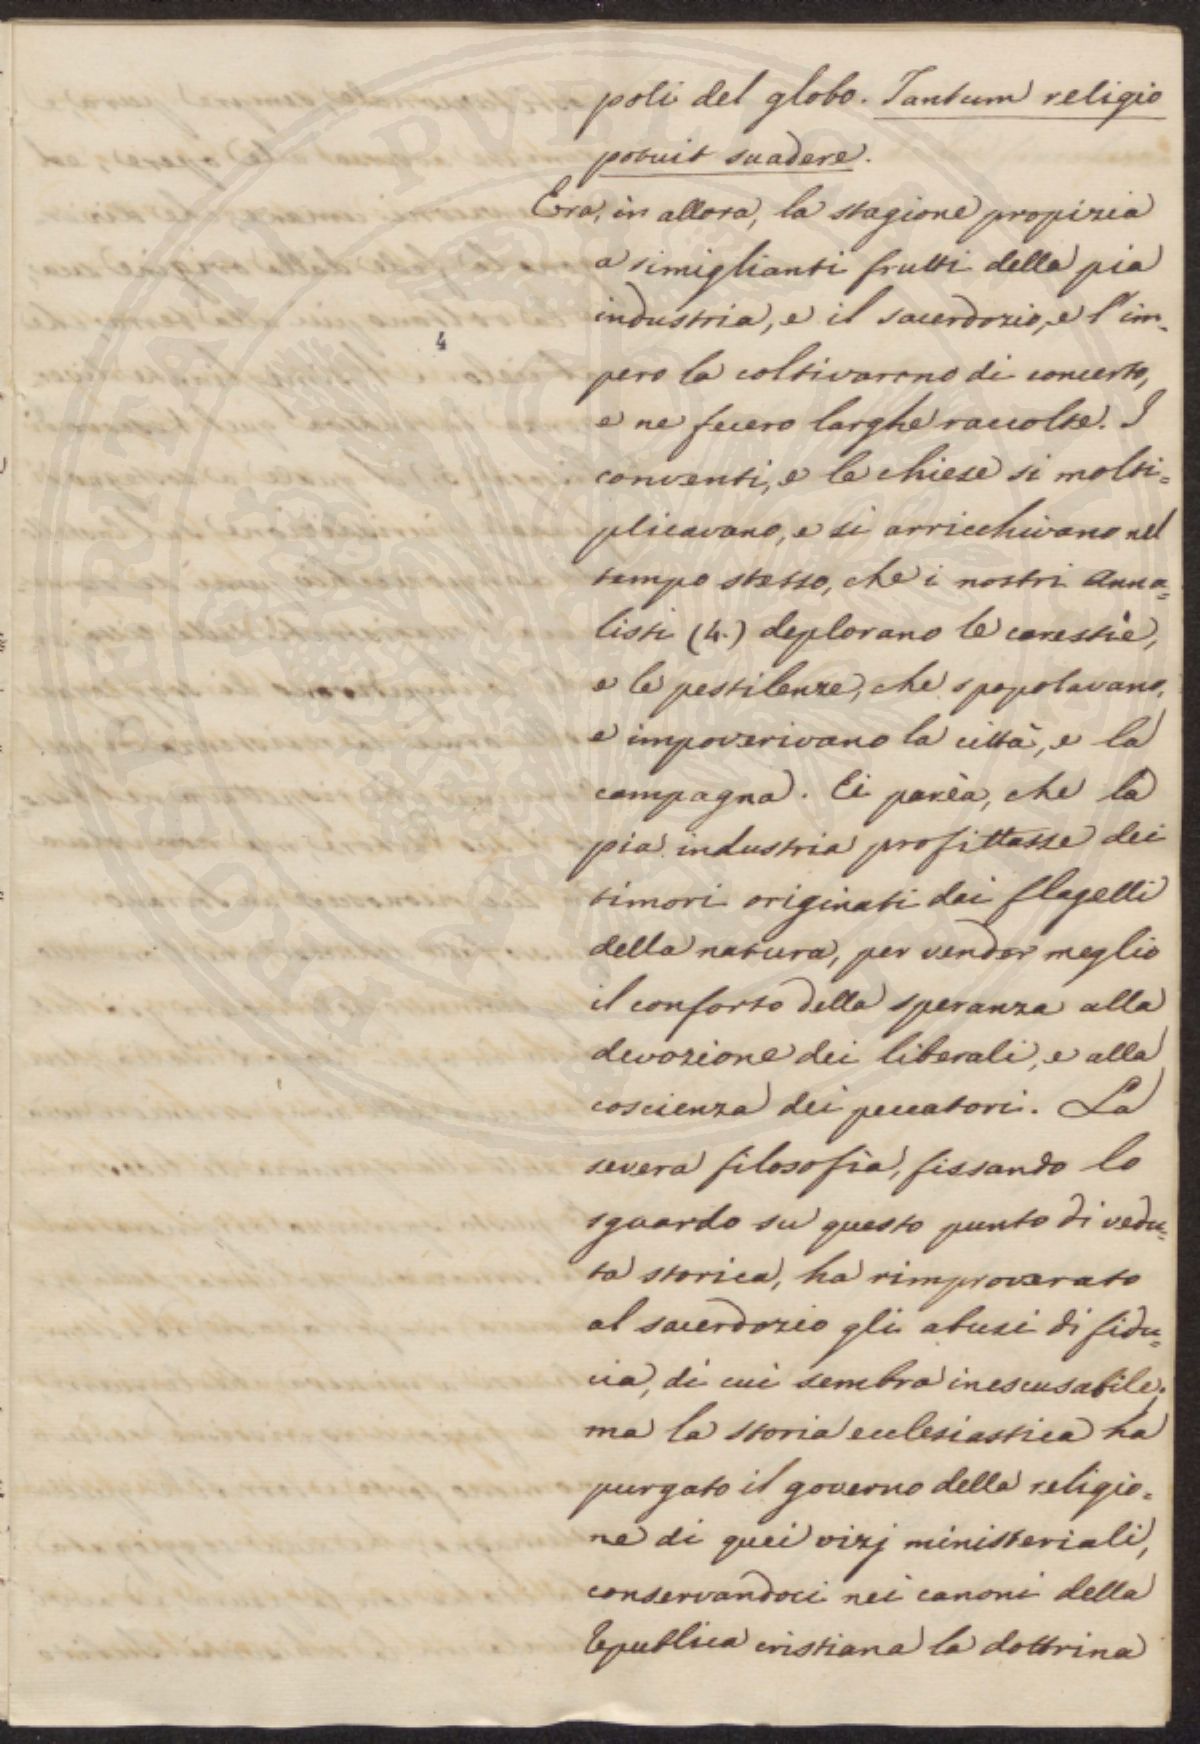 poli del globo. Tantum religio
potuit suadere.
Era, in allora, la stagione propizia
a simiglianti frutti della pia
industria, e il sacerdozio, e l'im-
4
pero la coltivarono di concerto,
e ne fecero larghe raccolte. I
conventi, e le chiese si molti=
plicavano, e si arricchivano nel
tempo stesso, che i nostri anna=
listi (4.) deplorano le carestìe,
e le pestilenze, che spopolavano,
e impoverivano la città, e la
campagna. Ei parèa, che la
pia industria profittasse dei
timori originati dai flagelli
della natura, per vender meglio
il conforto della speranza alla
devozione dei liberali, e alla
coscienza dei peccatori. La
severa filosofia, fissando lo
sguardo su questo punto di vedu=
ta storica, ha rimproverato
al sacerdozio gli abusi di fidu=
cia, di cui sembra inescusabile;
ma la storia ecclesiastica ha
purgato il governo della religio-
ne di quei vizj ministeriali,
conservandoci nei canoni della
Republica cristiana la dottrina